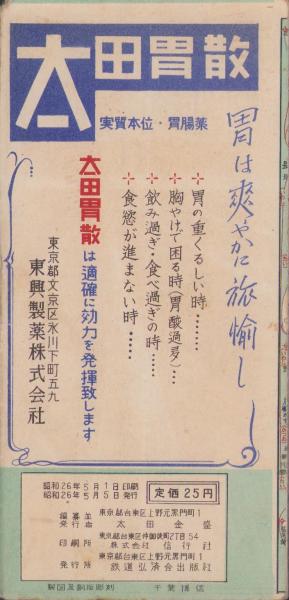 太田胃散
実質本位・胃腸薬
胃は爽やかに旅愉し
胃の重くるしい時……
胸やけで困る時(胃酸過多)…
飲み過ぎ・食べ過ぎの時……
食慾が進まない時……
太田胃散は適確に効力を発揮致します
東京都文京区氷川下町五九
東興製薬株式会社
昭和26年5月1日印刷
昭和26年5月5日発行
定価25円
編纂並発行者
東京都台東区上野元黒門町1
太田金盛
印刷所
東京都台東区仲御徒町2丁目54
株式会社 信行社
発行所
東京都台東区上野元黒門町1
鉄道弘済会出版社
製図及銅版彫刻 千葉博信